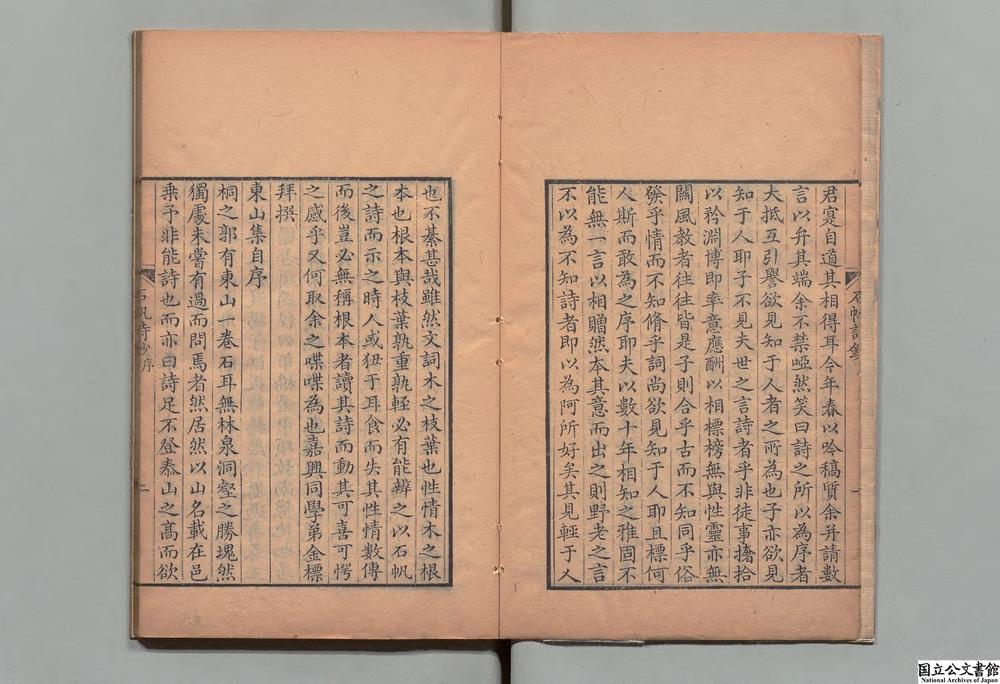 君寔自道其相得耳今年春以吟稿質余并請數
言以弁其端余不禁啞然笑曰詩之所以為序者
大抵互引譽欲見知于人者之所為也子亦欲見
知于人耶子不見夫世之言詩者乎非徒事搚拾
以矜淵博即率意應酬以相標榜無與性靈亦無
關風教者往往皆是子則合乎古而不知同乎俗
發乎情而不知脩乎詞尚欲見知于人耶且標何
人斯而敢為之序耶夫以數十年相知之雅固不
能無一言以相贈然本其意而出之則野老之言
不以為不知詩者即以為阿所好矣其見輕于人
也不綦甚哉雖然文詞木之枝葉也性情木之根
本也根本與枝葉孰重孰輕必有能辨之以石帆
之詩而示之時人或狃于耳食而失其性情數傳
而後豈必無稱根本者讀其詩而動其可喜可愕
之感乎又何取余之喋喋為也嘉興同學弟金標
拜撰
東山集自序
桐之郭有東山一卷石耳無林泉洞壑之勝塊然
獨處未嘗有過而問焉者然居然以山名載在邑
乘予非能詩也而亦曰詩足不登泰山之高而欲
石帆詩鈔
序
二
国立公文書館
National Archives of Japan